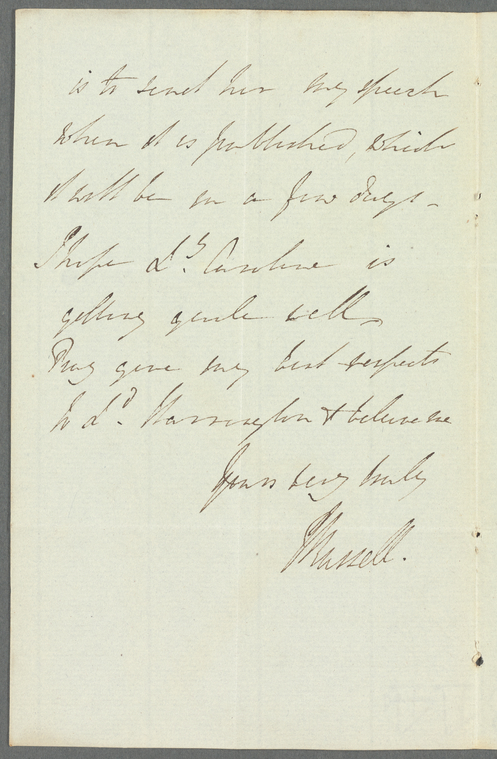 is to send her my speech
when it is published, which
it will be in a few days -
I hope Ly. Caroline is
getting quite well,
Pray give my best respects
to Ld. Harrington & believe me
Yours very truly
J Russell.